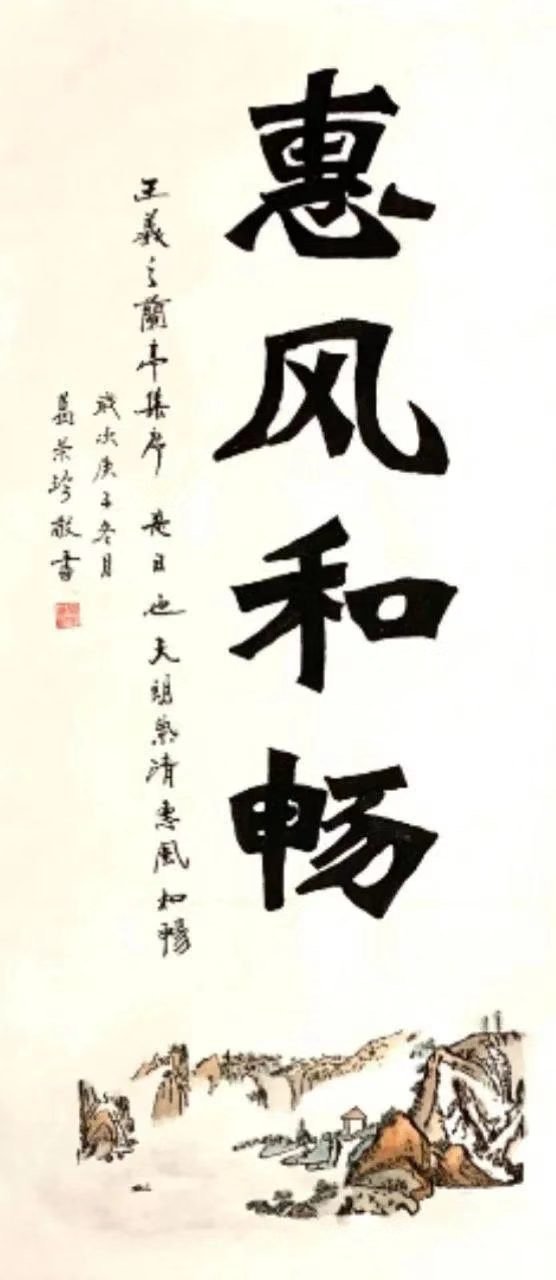 惠风和畅
王羲之蘭亭集序 是日也天朗氣清惠風和暢
歲次庚子冬月
葛榮珍敬書